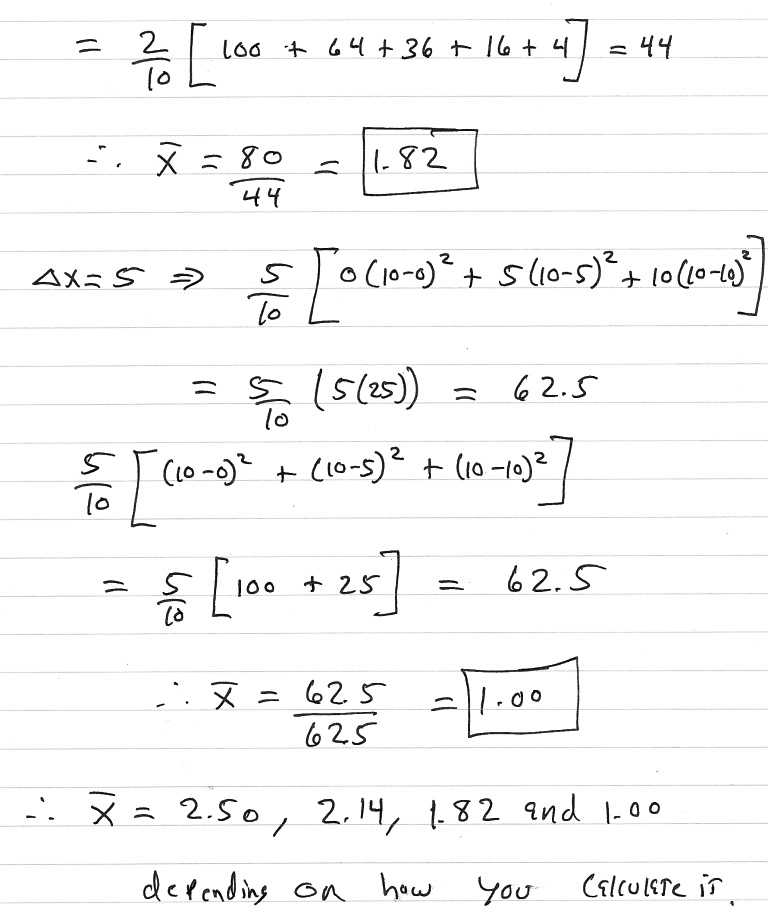 = 2/10 [100 + 64 + 36 + 16 + 4] = 44
∴ x̄ = 80/44 = 1.82
Δx = 5 ⇒ 5/10 [0(10-0)² + 5(10-5)² + 10(10-10)²]
= 5/10 (5(25)) = 62.5
5/10 [(10-0)² + (10-5)² + (10-10)²]
= 5/10 [100 + 25] = 62.5
∴ x̄ = 62.5/62.5 = 1.00
∴ x̄ = 2.50, 2.14, 1.82 and 1.00
depending on how you calculate it.